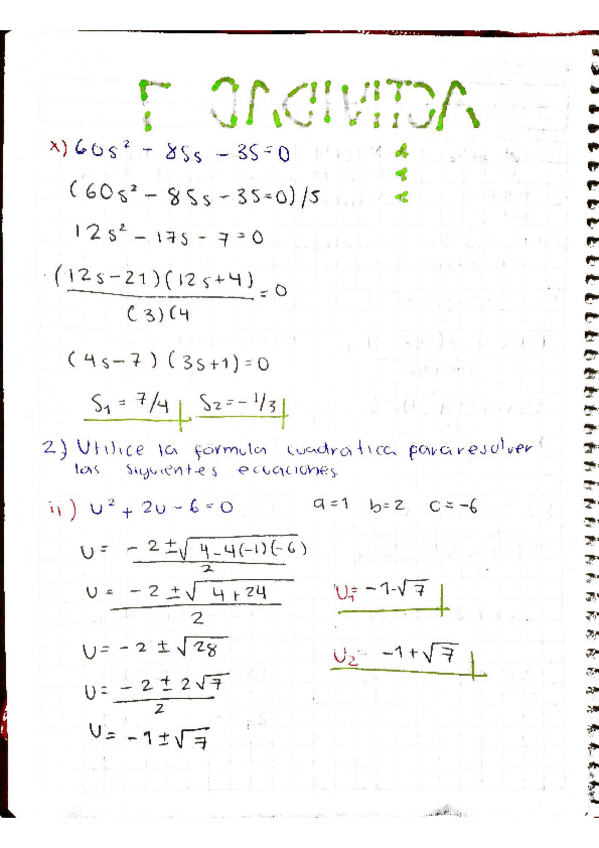 ACTIVIDAD 1
x) 60s² - 85s - 35=0
(60s² - 85s - 35=0)/5
12s² - 17s - 7=0
(12s-21)(12s+4) = 0
(3)(4
(4s-7) (3s+1)=0
S₁ = 7/4 S₂=-1/3
2) Utilice la fórmula cuadratica para resolver
las siguientes ecuaciones
ii) u² + 2u - 6 = 0 a=1 b=2 c=-6
U= -2±√4-4(-1)(-6)
2
U = -2 ±√4+24
2
U= -2 ± √28
U= -2 ± 2√7
2
U= -1±√7
U₁= -1-√7
U₂= -1+√7